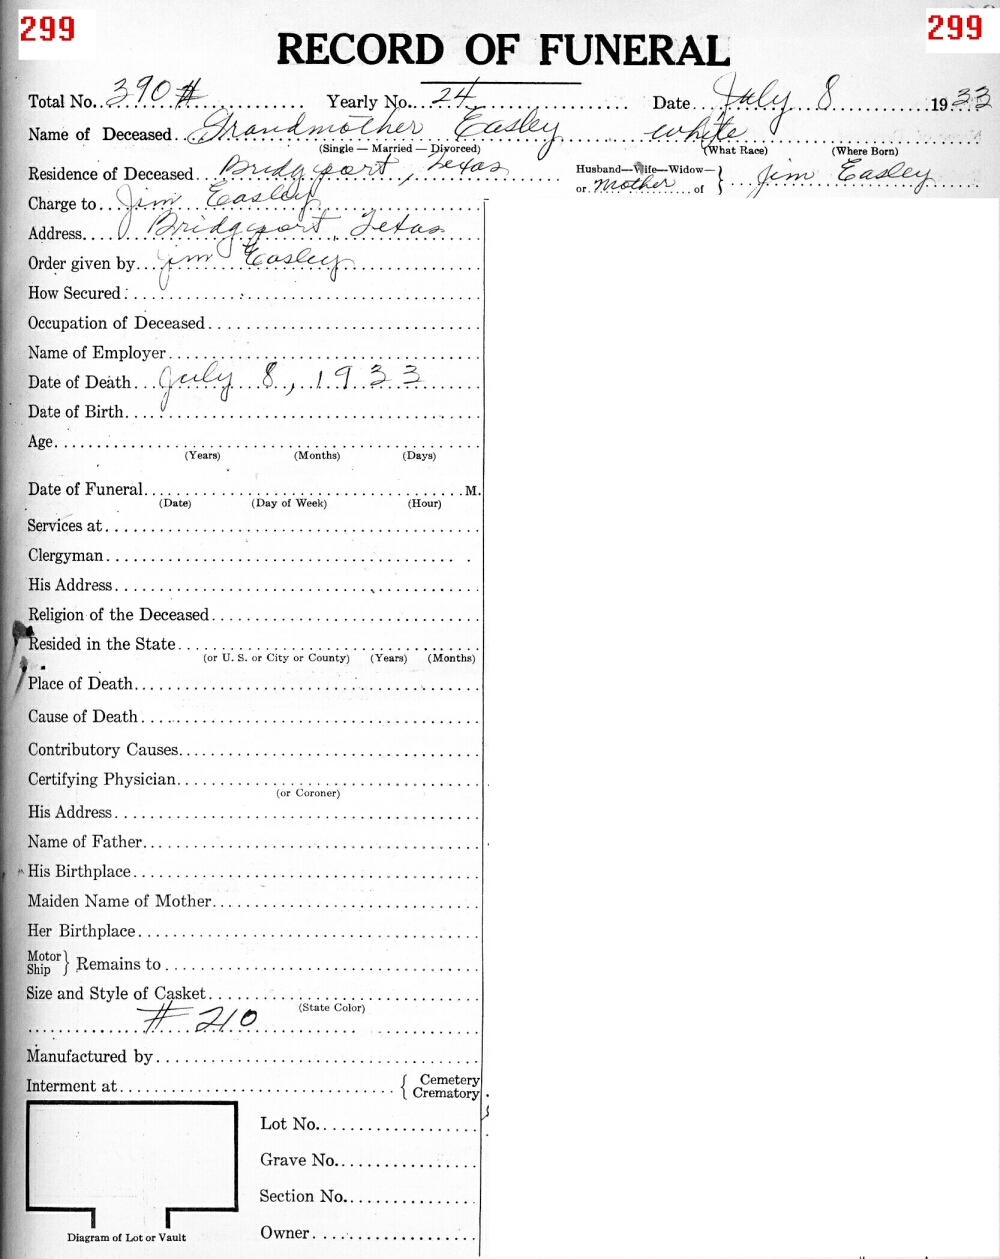 299 299
RECORD OF FUNERAL
Total No. 390 # Yearly No. 24 Date July 8 1933
Name of Deceased Grandmother Easley white
(Single — Married — Divorced) (What Race) (Where Born)
Residence of Deceased Bridgeport, Texas Husband—Wife—Widow— or Mother of } Jim Easley
Charge to Jim Easley
Address Bridgeport, Texas
Order given by Jim Easley
How Secured:
Occupation of Deceased
Name of Employer
Date of Death July 8, 1933
Date of Birth
Age
(Years) (Months) (Days)
Date of Funeral M.
(Date) (Day of Week) (Hour)
Services at
Clergyman
His Address
Religion of the Deceased
Resided in the State
(or U. S. or City or County) (Years) (Months)
Place of Death
Cause of Death
Contributory Causes
Certifying Physician
(or Coroner)
His Address
Name of Father
His Birthplace
Maiden Name of Mother
Her Birthplace
Motor Ship } Remains to
Size and Style of Casket
(State Color)
# 210
Manufactured by
Interment at { Cemetery Crematory
Lot No.
Grave No.
Section No.
Owner
Diagram of Lot or Vault